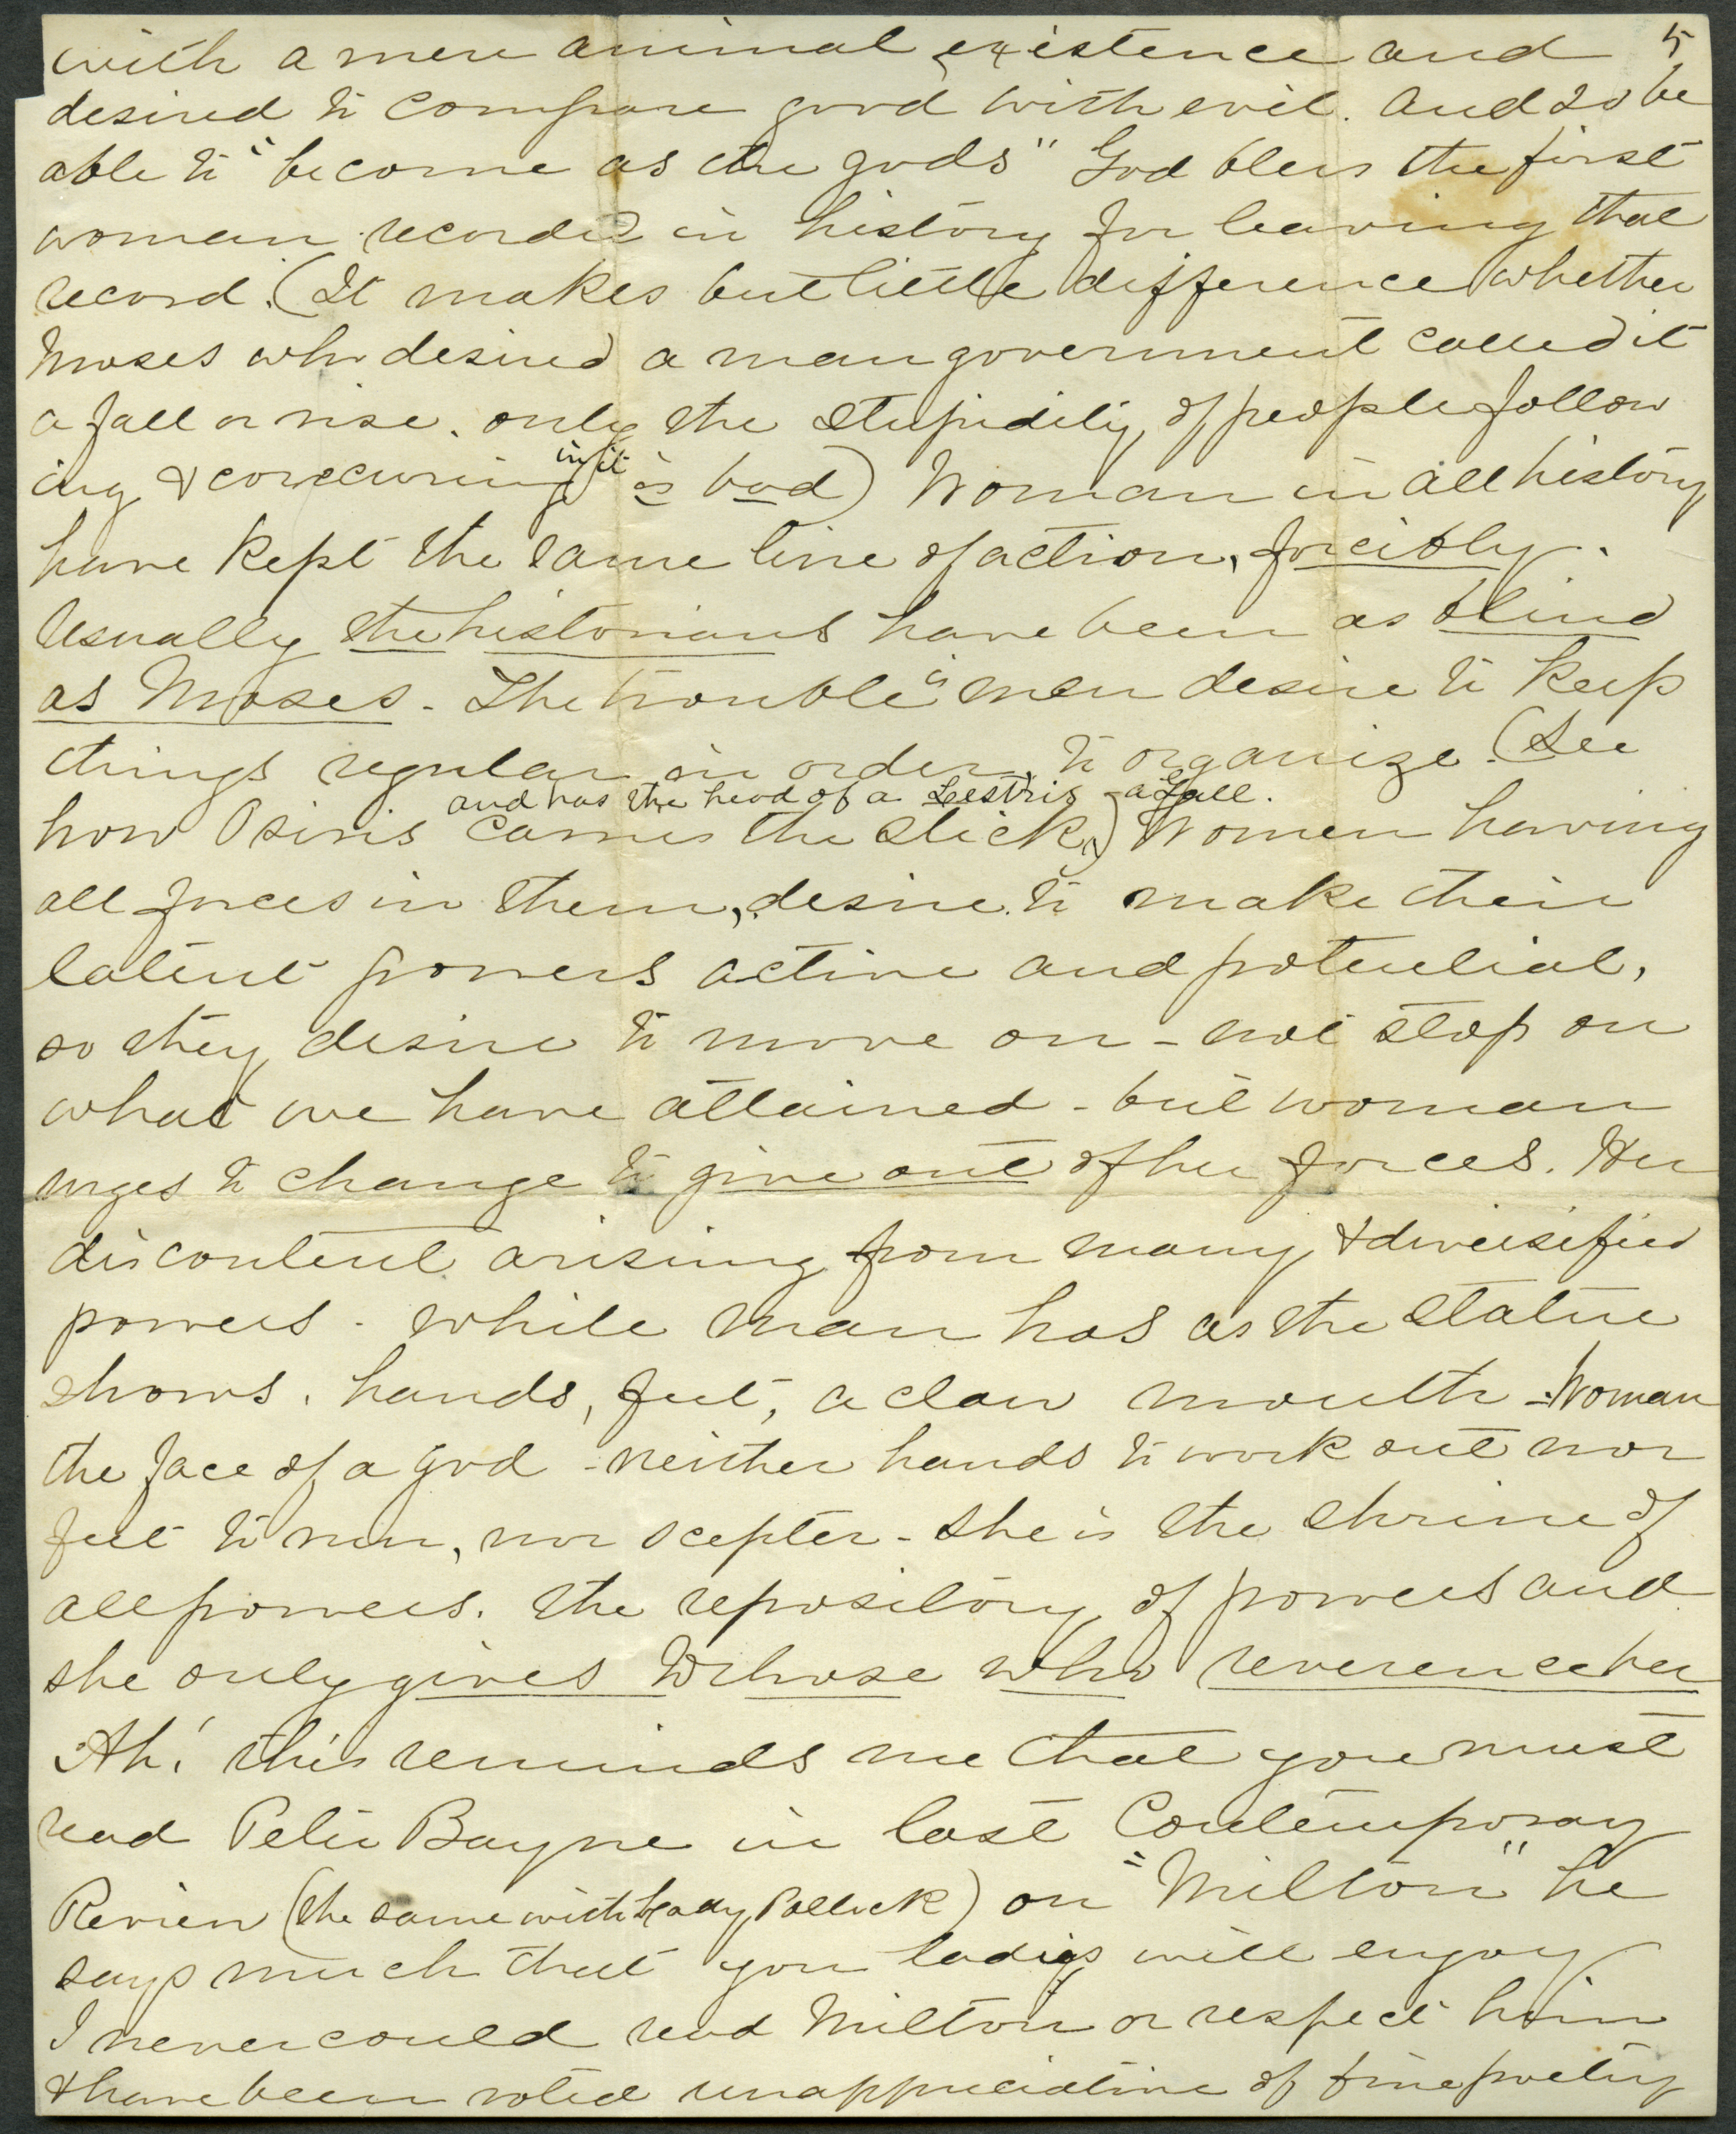 5
with a mere animal existence and
desired to compare good with evil. And so be
able to "become as the gods" God bless the first
woman recorded in history for leaving that
record. (It makes but little difference whether
Moses who desired a man government called it
a fall or rise. only the stupidity of people follow
ing & concuring in it is bad) Woman in all history
have kept the same line of action, forcibly.
Usually the historians have been as blind
as Moses - The trouble is men desire to keep
things regular in order, to organize. (See
and has the head of a Lestris - a Gull.
how Osiris carries the stick.) Women having
all forces in them, desire to make their
latent powers active and potential,
so they desire to move on - not stop on
what we have attained - but woman
urges to change to give out of her forces. Her
discontent arising from many & diversified
powers - while man has as the statue
shows. hands, feet, a claw mouth - Woman
the face of a god - neither hands to work out nor
feet to run, nor scepter - She is the shrine of
all powers. the repository of powers and
she only gives to those who reverence her
Ah! this reminds me that you must
read Peter Bayne in last Contemporay
Review (the same with Lady Pollock) on "Milton" he
says much that you ladies will enjoy
I never could read Milton or respect him
& have been voted unappreciative of fine poetry